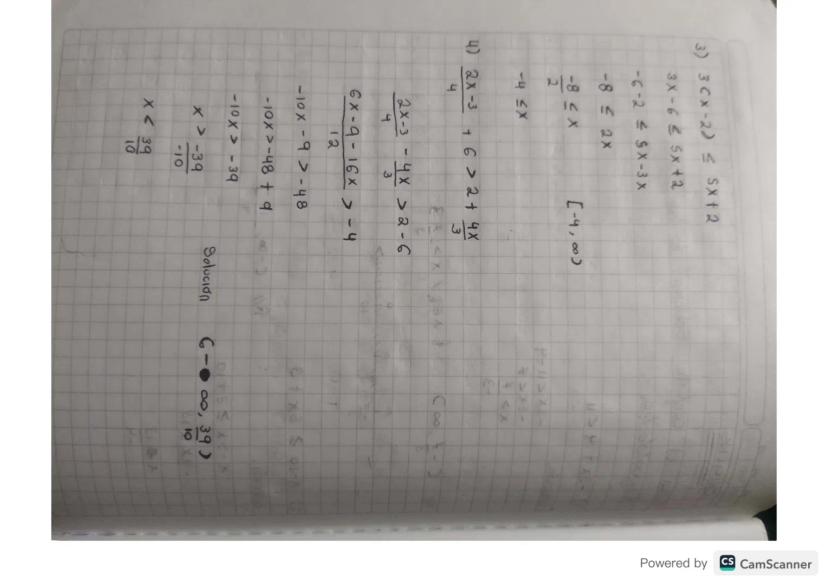 3) 3(x-2) ≤ 5x+2
3x-6 ≤ 5x+2
-6-2 ≤ 5x-3x
-8 ≤ 2x
-8/2 ≤ x [-4, ∞)
-4 ≤ x
4) 2x-3/4 + 6 > 2 + 4x/3
2x-3/4 - 4x/3 > 2-6
6x-9-16x/12 > -4
-10x-9 > -48
-10x > -48+9
-10x > -39
x > -39/-10
x < 39/10
Solución (-∞, 39/10)
Powered by CS CamScanner